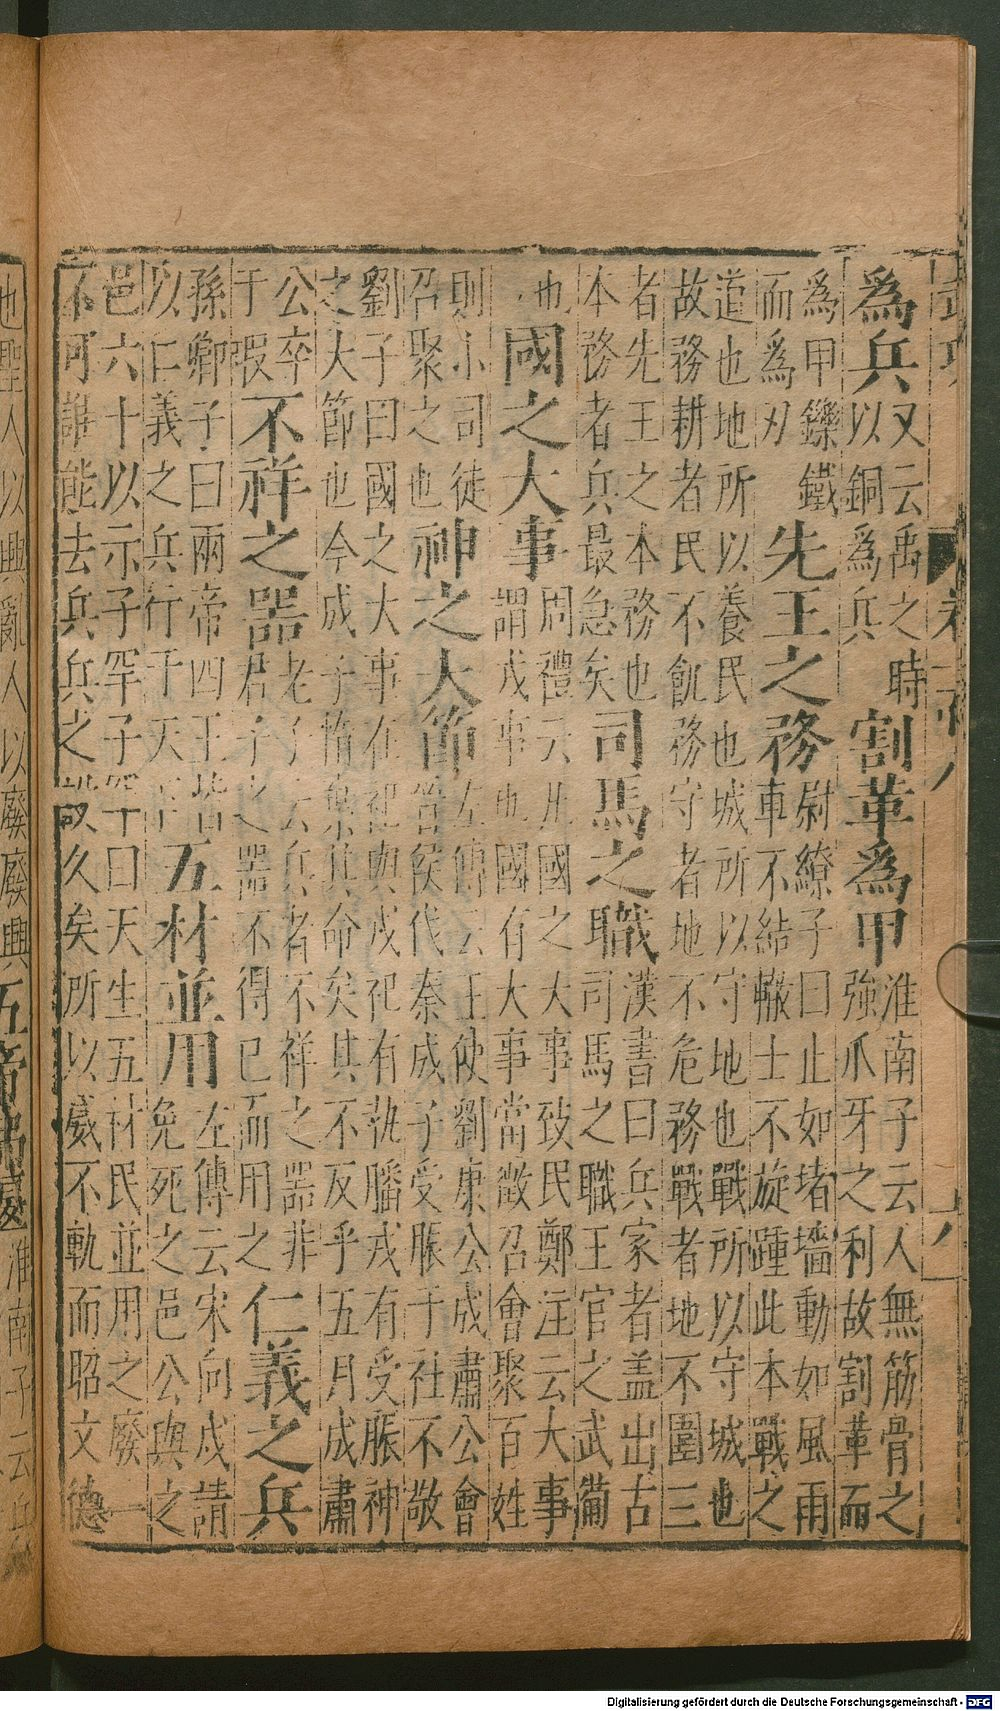 爲兵
又云禹之時
以銅爲兵
割革爲甲
淮南子云人無筋骨之
強爪牙之利故割革而
爲甲鑠鐵
而爲刃
先王之務
尉繚子曰止如堵墻動如風雨
車不結轍士不旋踵此本戰之
道也地所以養民也城所以守地也戰所以守城也
故務耕者民不飢務守者地不危務戰者地不圍三
者先王之本務也
本務者兵最急矣
司馬之職
漢書曰兵家者盖出古
司馬之職王官之武僃
也
國之大事
周禮云凡國之大事致民鄭注云大事
謂戎事也國有大事當徵召會聚百姓
則小司徒
召聚之也
神之大節
左傳云王使劉康公成肅公會
晉侯伐秦成子受脤于社不敬
劉子曰國之大事在祀與戎祀有執膰戎有受脤神
之大節也今成子惰棄其命矣其不反乎五月成肅
公卒
于瑕
不祥之器
老子云兵者不祥之器非
君子之器不得已而用之
仁義之兵
孫卿子曰兩帝四王皆
以仁義之兵行于天下
五材並用
左傳云宋向戌請
免死之邑公與之
邑六十以示子罕子罕曰天生五材民並用之廢一
不可誰能去兵兵之設久矣所以威不軌而昭文德
也聖人以興亂人以廢廢興
五帝
淮南子云兵
Digitalisierung gefördert durch die Deutsche Forschungsgemeinschaft - DFG